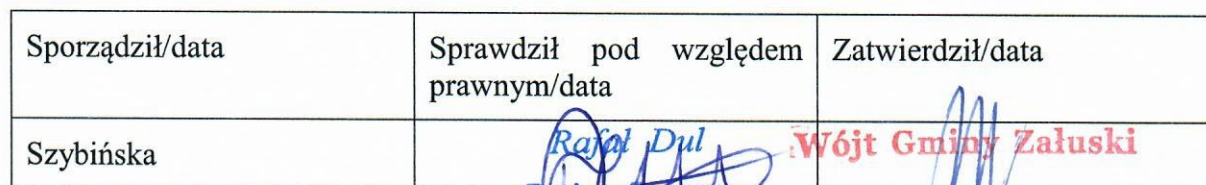 Sporządził/data
Sprawdził pod względem
prawnym/data
Zatwierdził/data
Szybińska
Rafał Dul
Wójt Gminy Załuski